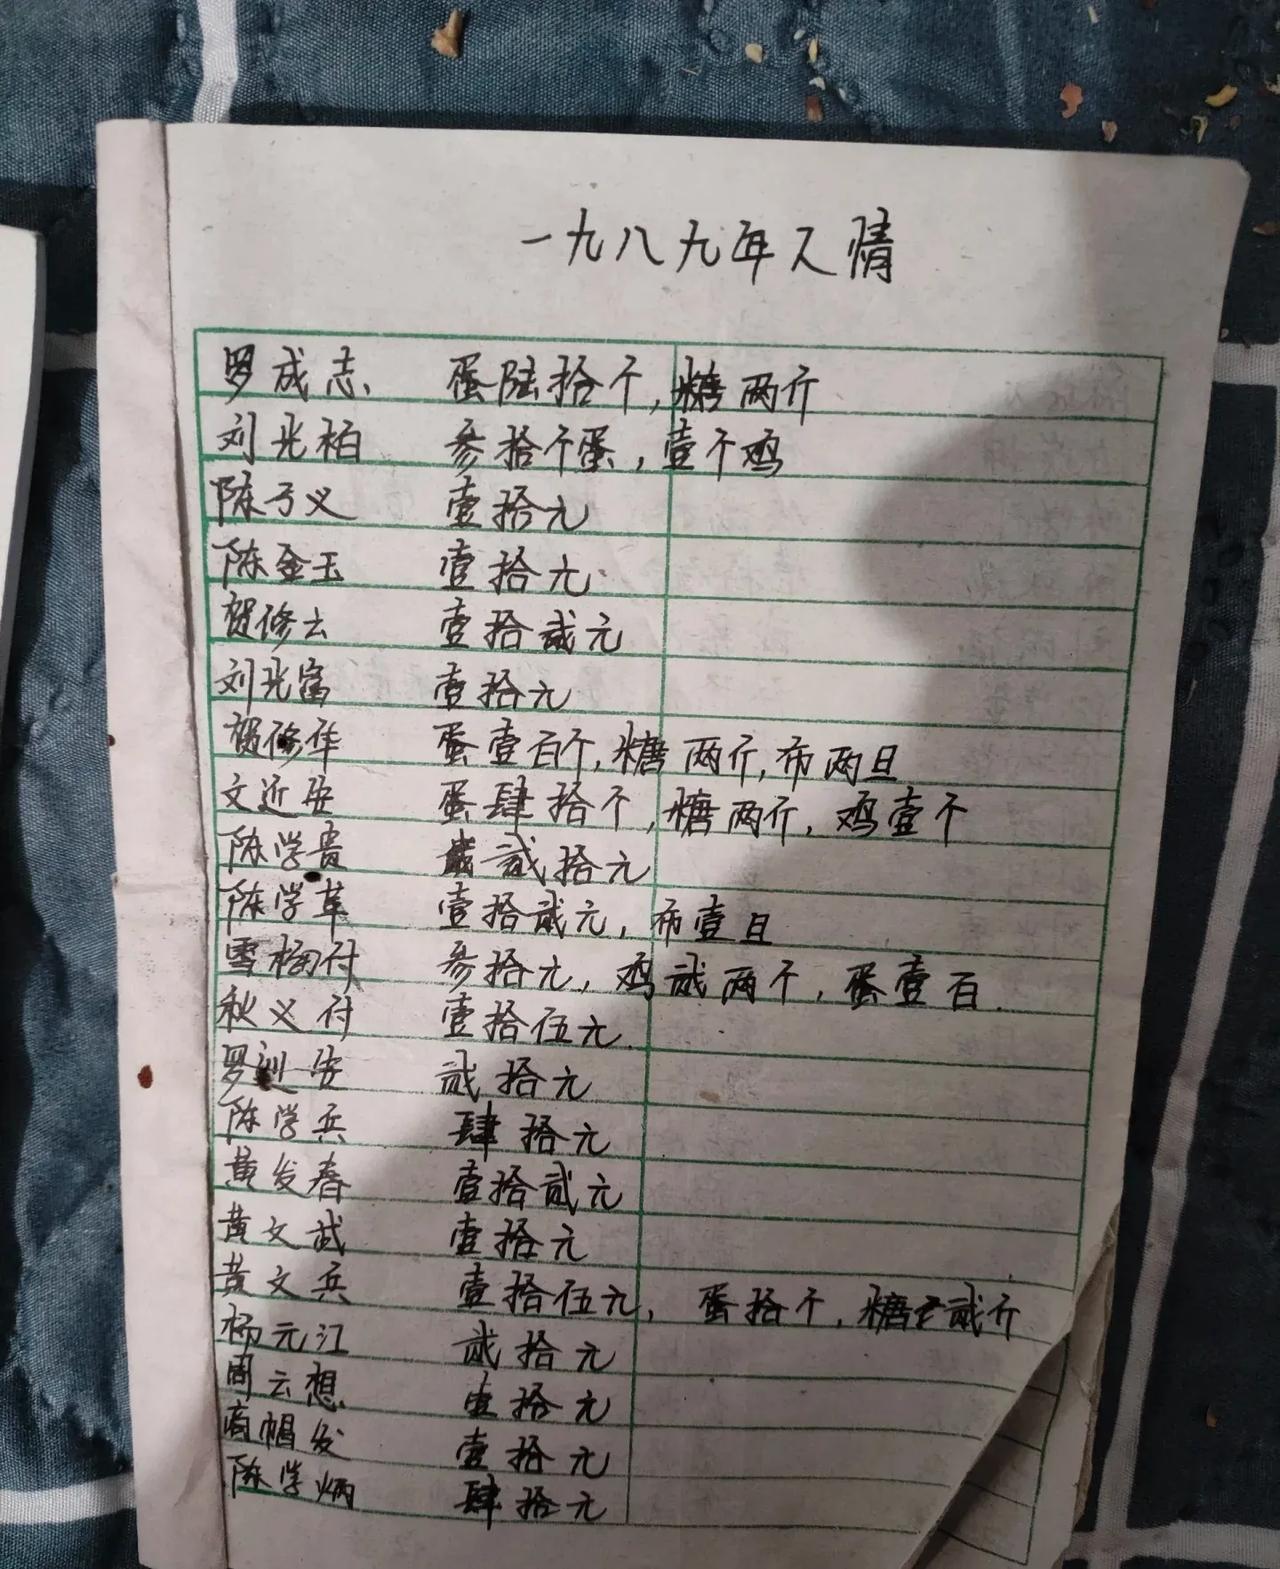 一九八九年人情
罗成志 蛋陆拾个，糖两斤
刘兆柏 参拾个蛋，壹个鸡
陈子义 壹拾元
陈金玉 壹拾元
贺修云 壹拾贰元
刘兆富 壹拾元
贺修华 蛋壹百个，糖两斤，布两旦
文近安 蛋肆拾个，糖两斤，鸡壹个
陈学贵 贰拾元
陈学革 壹拾贰元，布壹旦
雪梅付 参拾元，鸡贰两个，蛋壹百.
秋义付 壹拾伍元.
罗训安 贰拾元
陈学兵 肆拾元
黄发春 壹拾贰元
黄文武 壹拾元
黄文兵 壹拾伍元，蛋拾个，糖贰斤
杨元江 贰拾元
周云想 壹拾元
帽发 壹拾元
陈学炳 肆拾元